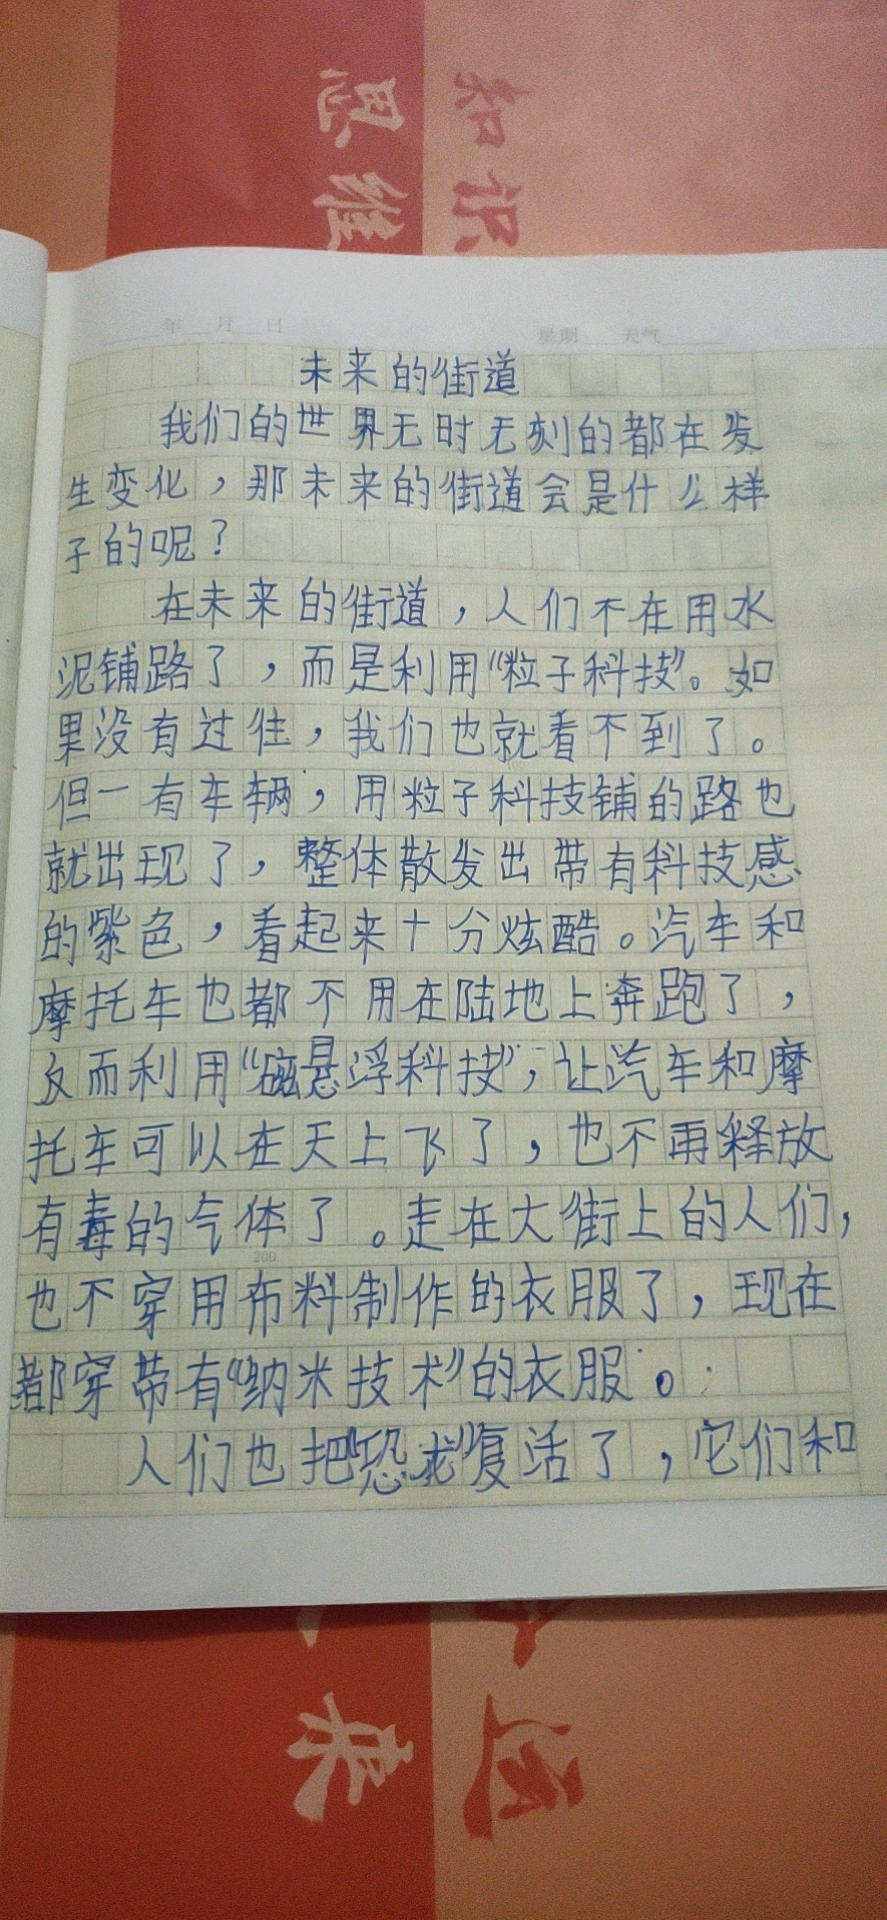 思维
知识
年 月 日
星期 天气
未来的街道
我们的世界无时无刻的都在发
生变化，那未来的街道会是什么样
子的呢？
在未来的街道，人们不在用水
泥铺路了，而是利用“粒子科技”。如
果没有过往，我们也就看不到了。
但一有车辆，用粒子科技铺的路也
就出现了，整体散发出带有科技感
的紫色，看起来十分炫酷。汽车和
摩托车也都不用在陆地上奔跑了，
反而利用“磁悬浮科技”，让汽车和摩
托车可以在天上飞了，也不再释放
有毒的气体了。走在大街上的人们，
200
也不穿用布料制作的衣服了，现在
都穿带有“纳米技术”的衣服。
人们也把“恐龙”复活了，它们和
来